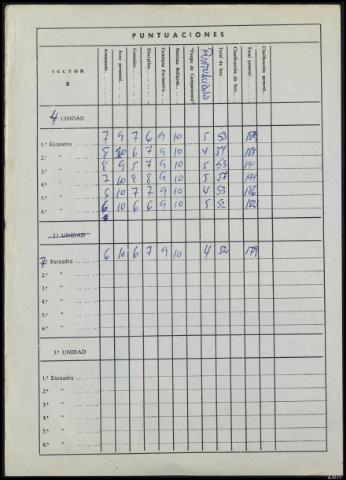 PUNTUACIONES
SECTOR
B
Acampada
Aseo personal
Comedor
Disciplina
Consigna Formativa
Máxima Religiosa
"Fuego de Campamento"
PUNTUALIDAD
Total de hoy
Clasificación de hoy
Total general
Clasificación general
4 UNIDAD
1.ª Escuadra 7 9 7 6 9 10 5 53
2.ª " 6 7 9 10 4 54
3.ª " 8 9 5 7 9 10 5 53 191
4.ª " 7 10 8 8 9 10 5 57 194
5.ª " 8 10 7 7 9 10 4 53 186
6.ª " 6 10 6 6 9 10 5 52 182
2.ª UNIDAD
7 Escuadra 6 10 6 7 9 10 4 52 179
2.ª "
3.ª "
4.ª "
5.ª "
6.ª "
3.ª UNIDAD
1.ª Escuadra
2.ª "
3.ª "
4.ª "
5.ª "
6.ª "